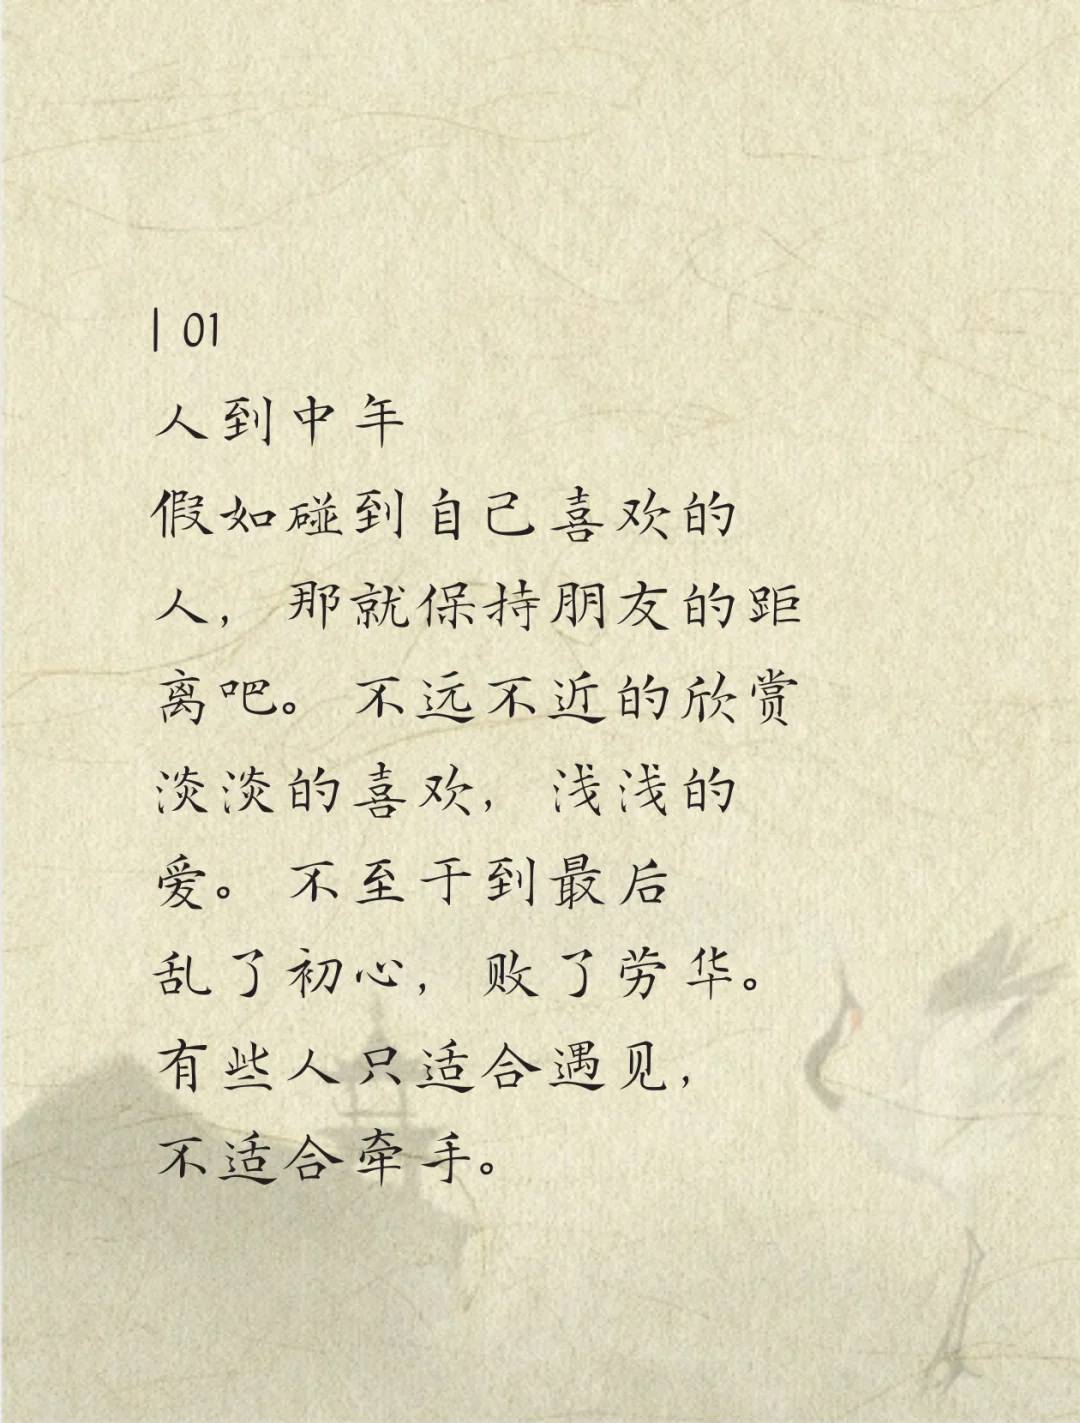 | 01
人到中年
假如碰到自己喜欢的
人，那就保持朋友的距
离吧。不远不近的欣赏
淡淡的喜欢，浅浅的
爱。不至于到最后
乱了初心，败了劳华。
有些人只适合遇见，
不适合牵手。